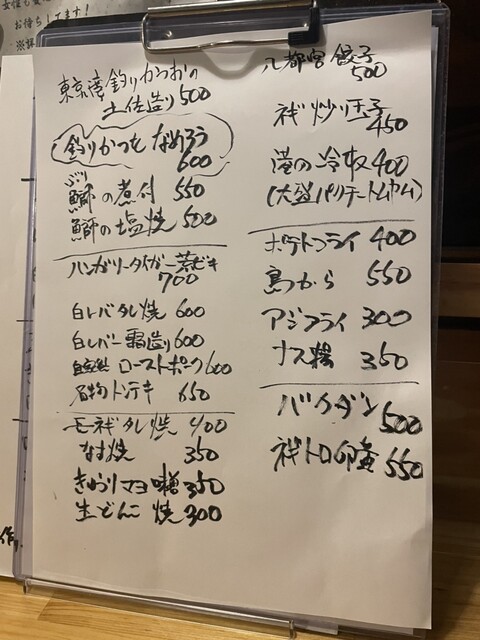 お待ちしてます!
東京湾釣りかつおの
土佐造り 500
釣りかつを なめろう
600
ぶり
鰤の煮付 550
鰤の塩焼 500
ハンガリータイガー
700
白レバタレ焼 600
白レバー 霜造り 600
自家製 ローストポーク 600
名物トンテキ 650
モロネギタレ焼 400
なす焼 350
きゅうりマヨ味噌 350
生でんこ 焼 300
餃子
500
炒り玉子
450
滝の冷奴 400
(大盛パクチートムヤム)
ポテトフライ 400
鳥から 550
アジフライ 300
ナス揚 350
バクダン
500
トロ卵黄 550